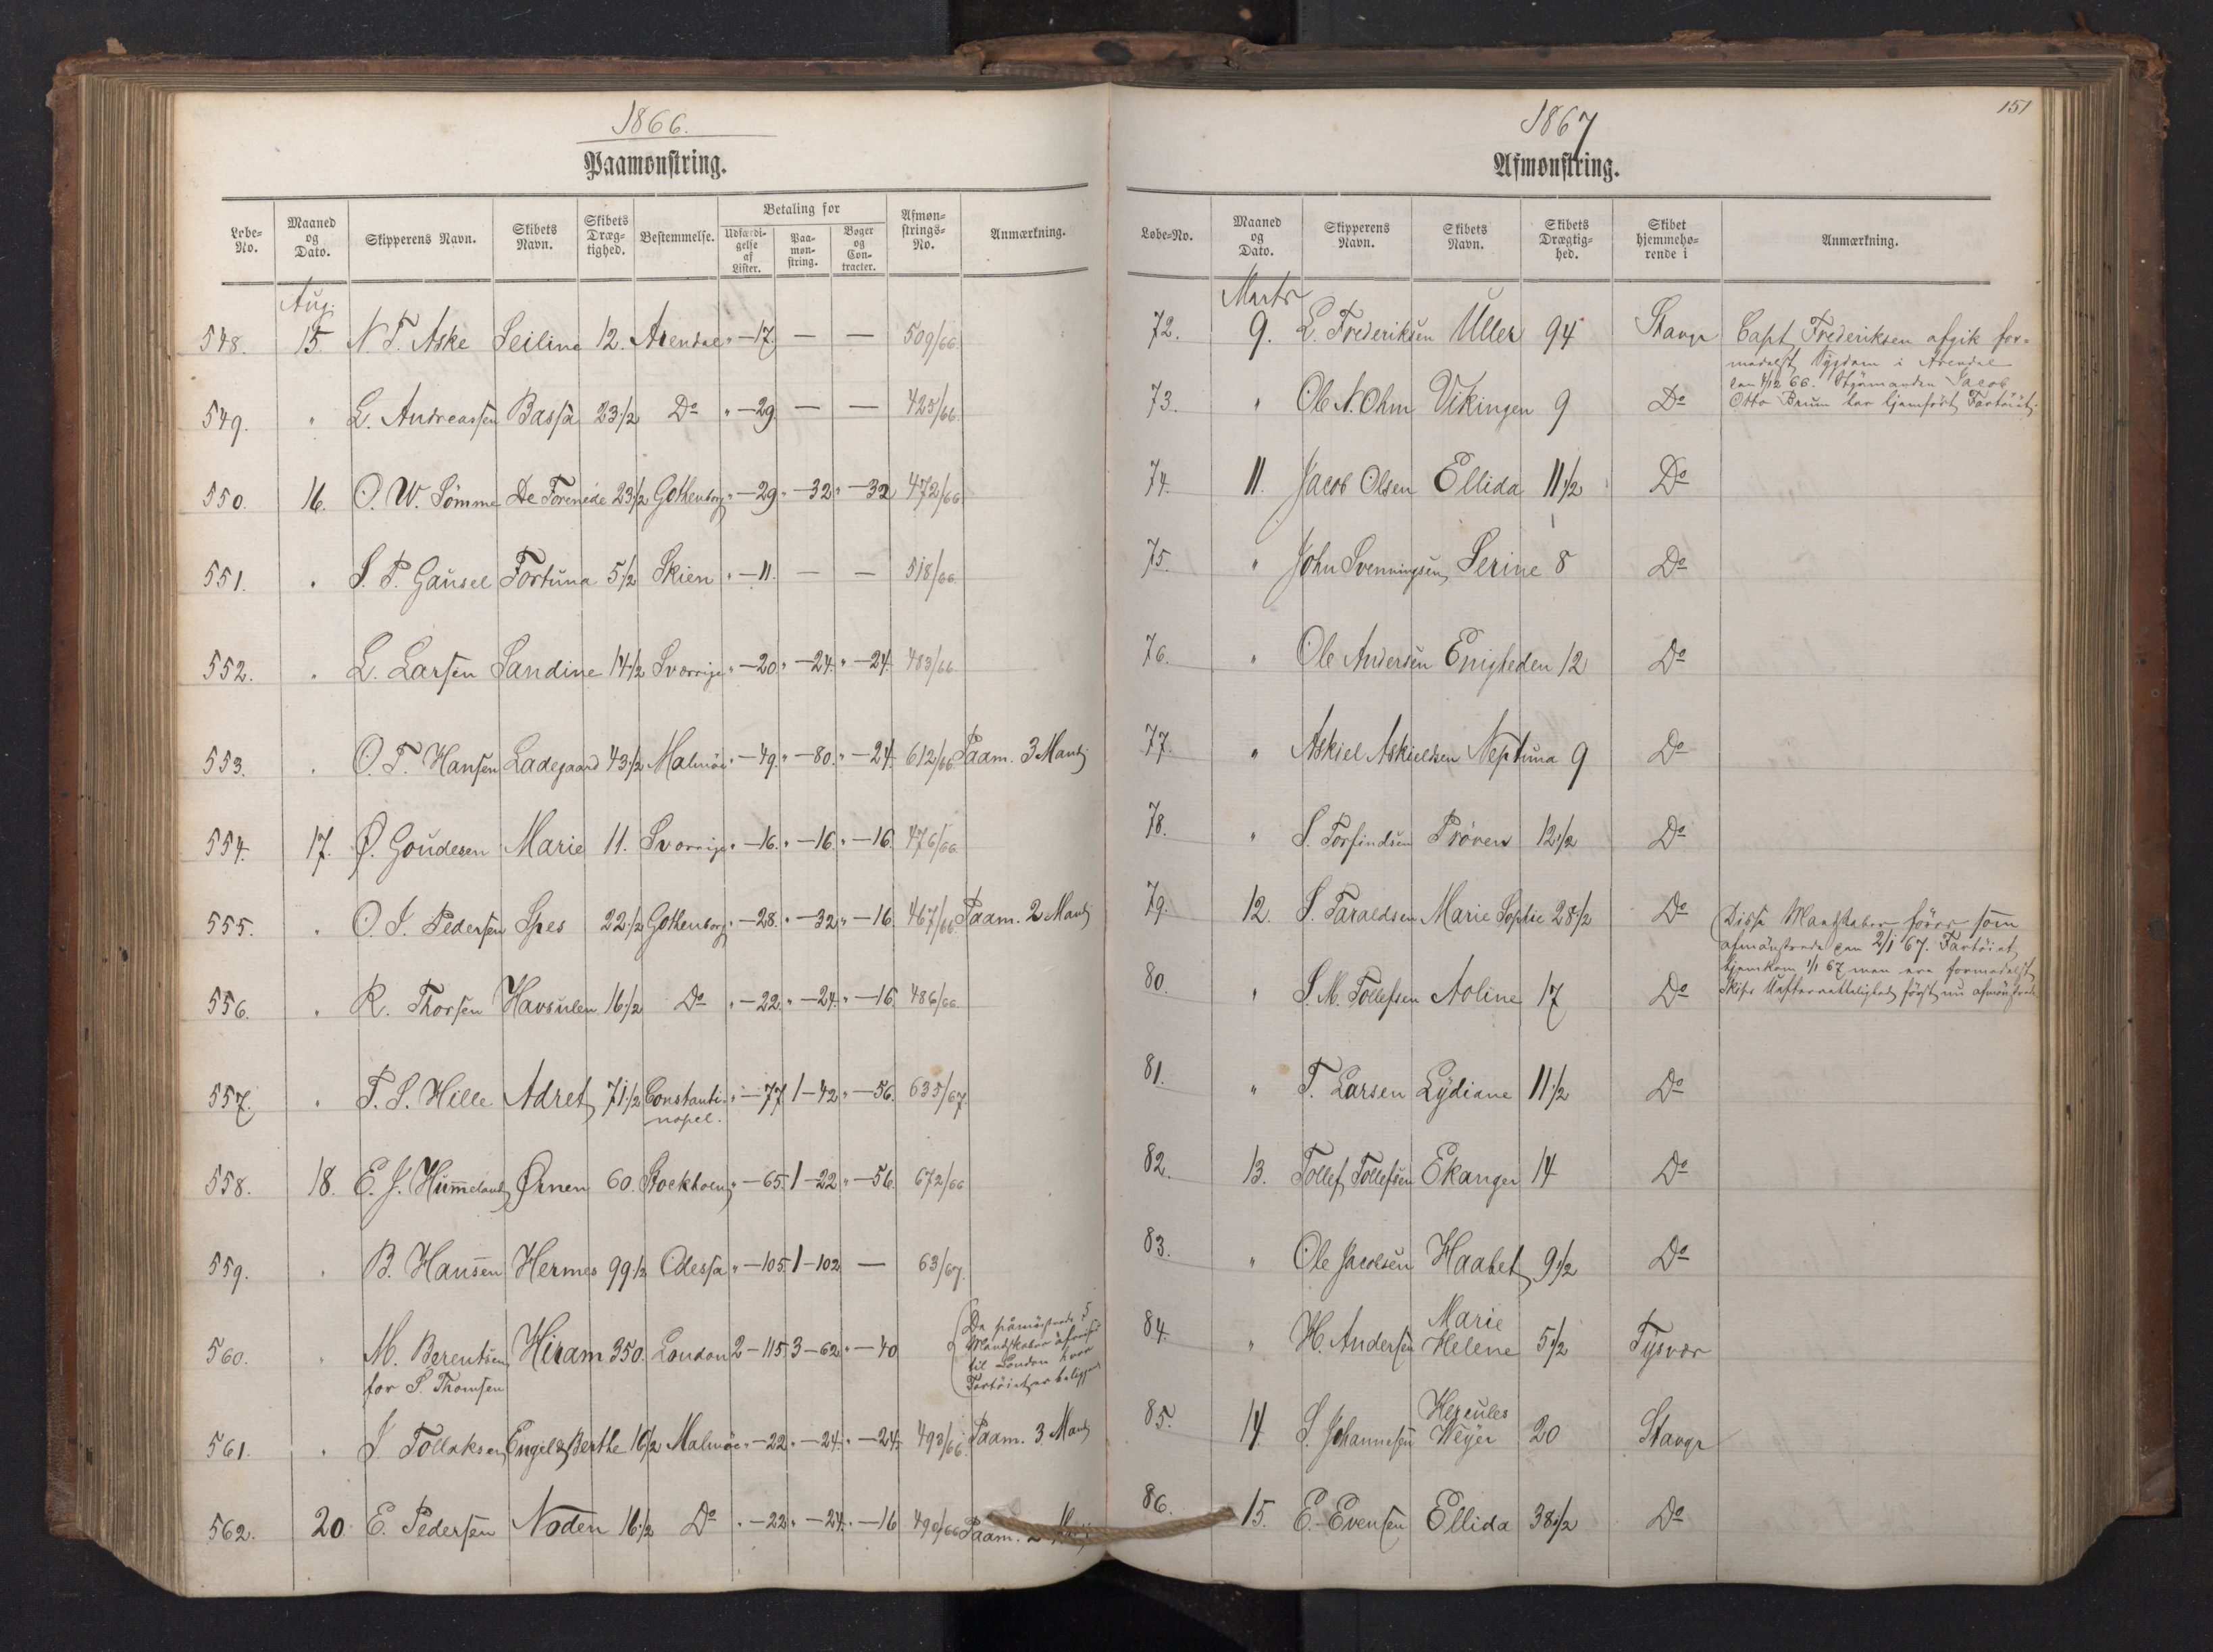 1866.
Paamønstring.
Løbe-No. Maaned og Dato. Skipperens Navn. Skibets Navn. Skibets Dræg-tighed. Bestemmelse. Betaling for Udfærdi-gelse af Lister. Paa-møn-string. Bøger og Con-tracter. Afmøn-strings-No. Anmærkning.
Aug.
548. 15. N. T. Aske Seiline 12. Arendal " — 17. — — 509/66.
549. " L. Andreassen Bassa 23 1/2 Do " — 29. — — 425/66.
550. 16. O. W. Sømme De Forenede 23 1/2 Gothenborg " — 29 " — 32 " — 32 472/66
551. " S. P. Gausel Fortuna 5 1/2 Skien " — 11. — — 518/66.
552. " L. Larsen Sandine 14 1/2 Sverrige " — 20. " — 24. " — 24. 483/66
553. " O. T. Hansen Ladegaard 43 1/2 Malmöe " — 49. " — 80. " — 24. 612/66. Paam. 3 Mand
554. 17. Ø. Goudesen Marie 11. Sverrige " — 16. " — 16. " — 16. 476/66
555. " O. J. Pedersen Spes 22 1/2 Gothenborg " — 28. " — 32 " — 16. 467/66. Paam. 2 Mand
556. " R. Thorsen Havsulen 16 1/2 Do " — 22. " — 24. " — 16. 486/66
557. " T. S. Hille Adret 71 1/2 Constanti-nopel. " — 77 1 — 42 " — 56. 635/67.
558. 18. E. J. Hummeland Ørnen 60. Stockholm " — 65. 1 — 22 " — 56. 672/66
559. " B. Hansen Hermes 99 1/2 Odessa " — 105. 1 — 102 — 63/67.
560. " M. Berentsen Hiram 350. London 2 — 115 3 — 62 " — 40 De påmønstrede 5
for P. Thomsen Mandskaber afreiste
til London hvor
Fartöiet er beliggende
561. " J. Tollaksen Engel & Berthe 16 1/2 Malmöe " — 22. " — 24. " — 24. 493/66. Paam. 3 Mand
562. 20 E. Pedersen Noden 16 1/2 Do " — 22 " — 24. " — 16 490/66 Paam. 2
151
1867
Afmønstring.
Løbe-No. Maaned og Dato. Skipperens Navn. Skibets Navn. Skibets Drægtig-hed. Skibet hjemmehø-rende i Anmærkning.
Marts
72. 9. L. Frederiksen Uller 94 Stavgr Capt Frederiksen afgik for-
medelst Sygdom i Arendal
den 4/12 66. Styrmanden Jacob
Otto Bruun har hjemført Fartöiet.
73. " Ole N. Ohm Vikingen 9 Do
74. 11. Jacob Olsen Ellida 11 1/2 Do
75. " John Svenningsen Serine 8 Do
76. " Ole Andersen Enigheden 12 Do
77. " Askiel Askieldsen Neptuna 9 Do
78. " S. Torfindsen Prøven 12 1/2 Do
79. 12. S. Taraldsen Marie Sophie 28 1/2 Do Disse Mandskaber föres som
afmönstrede den 2/1 67. Fartöiet
hjemkom 1/1 67 men ere formedelst
Skips Uefterrettelighed først nu afmönstrede
80. " S. M. Tollefsen Aoline 17 Do
81. " T. Larsen Lydiane 11 1/2 Do
82. 13. Tollef Tollefsen Ekanger 14 Do
83. " Ole Jacobsen Haabet 9 1/2 Do
84. " H. Andersen Marie Helene 5 1/2 Tysvær
85. 14 S. Johannesen Hercules Weyer 20 Stavgr
86. 15. E. Evensen Ellida 38 1/2 Do